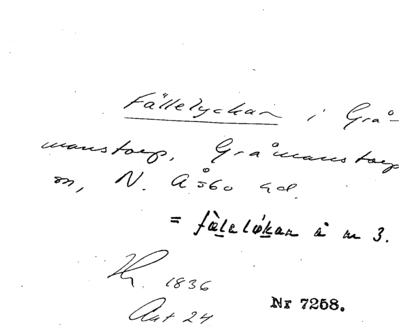 Fällelyckan i Grå-
manstorp, Gråmanstorp
sn, N. Åsbo hd.
= fàlelỳkan å m 3.
Hr. 1836
Ant 24
Nr 7258.